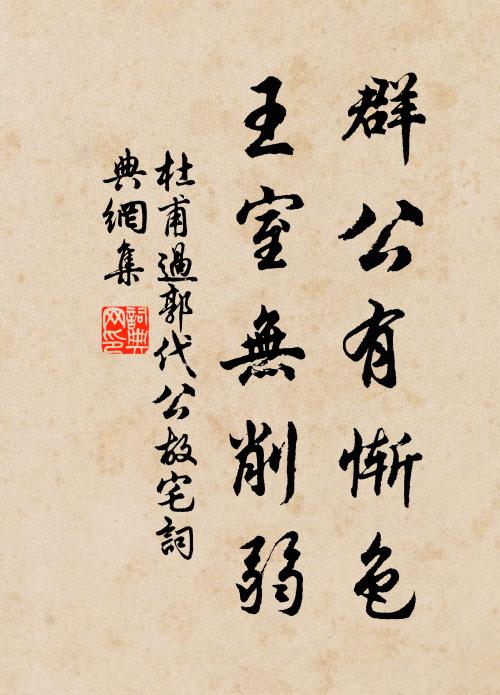 群公有慚色
王室無削弱
杜甫過郭代公故宅詞
典網集
詞典
网印